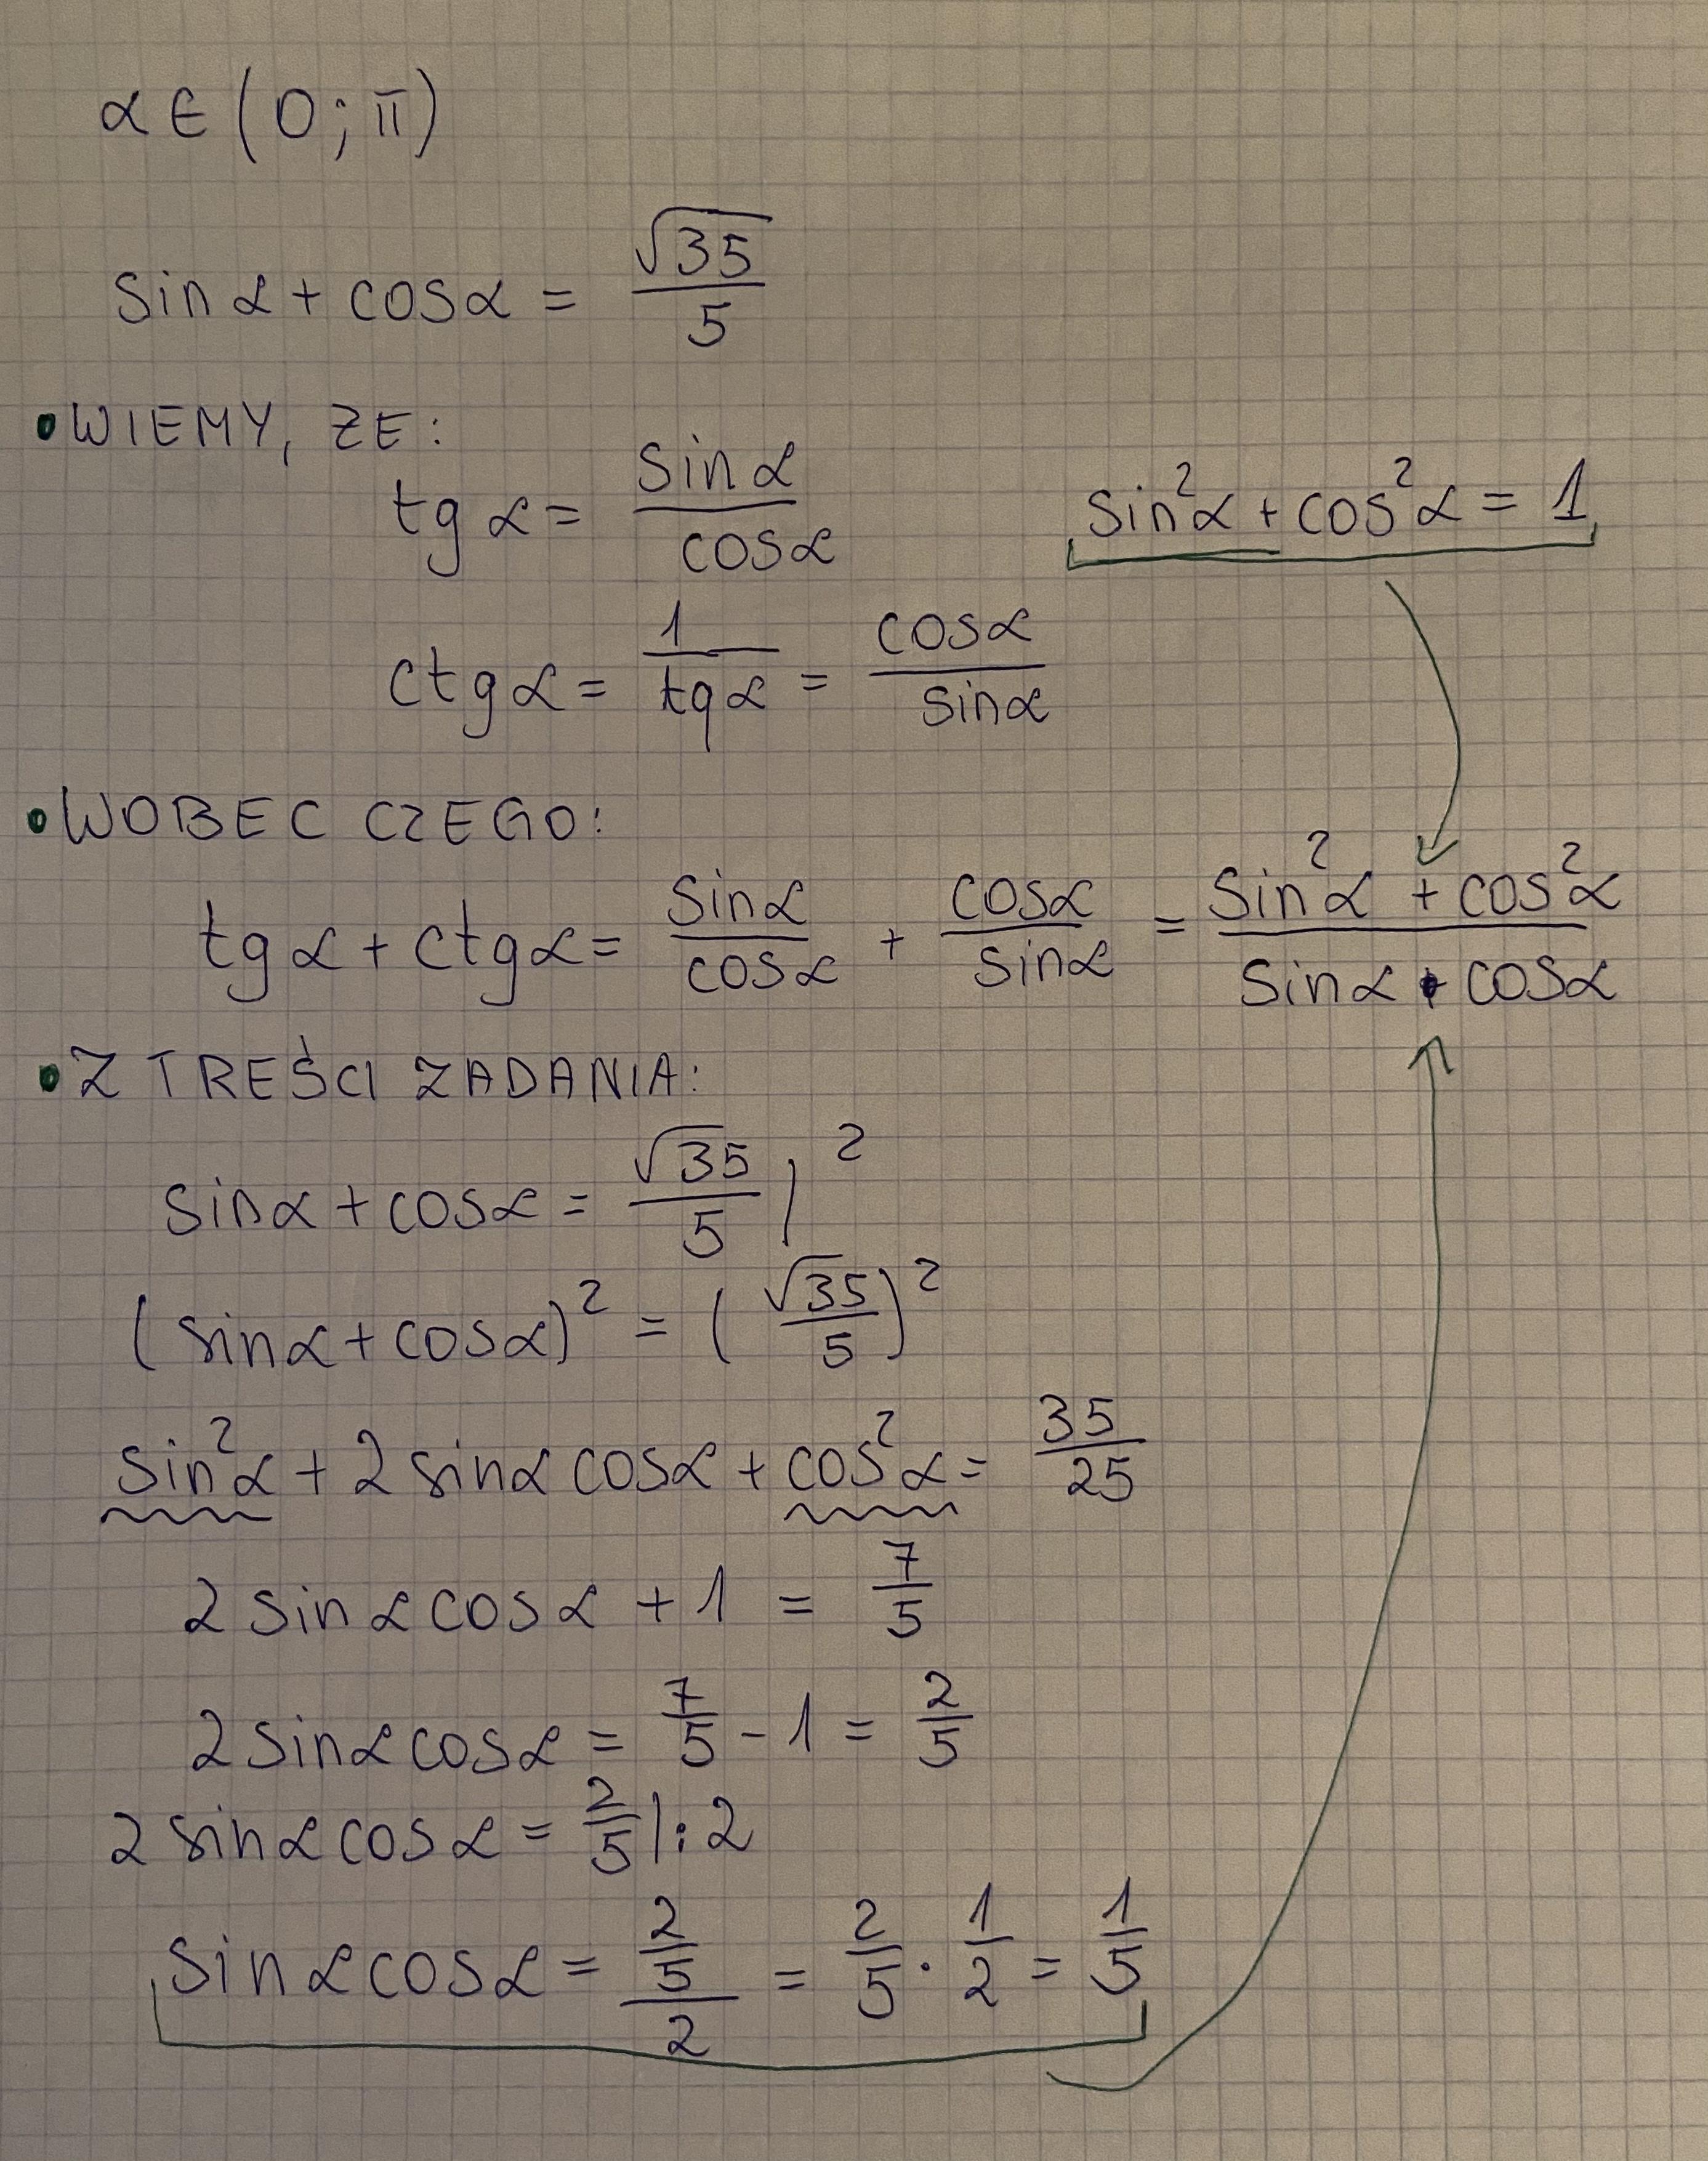 α ∈ (0; π)
sin α + cos α = √35/5
• WIEMY, ZE:
tg α = sin α / cos α
sin²α + cos²α = 1
ctg α = 1/tg α = cos α / sin α
• WOBEC CZEGO:
tg α + ctg α = sin α / cos α + cos α / sin α = (sin²α + cos²α) / (sin α • cos α)
• Z TREŚCI ZADANIA:
sin α + cos α = √35/5 |²
(sin α + cos α)² = (√35/5)²
sin²α + 2 sin α cos α + cos²α = 35/25
2 sin α cos α + 1 = 7/5
2 sin α cos α = 7/5 - 1 = 2/5
2 sin α cos α = 2/5 | : 2
sin α cos α = (2/5)/2 = 2/5 · 1/2 = 1/5